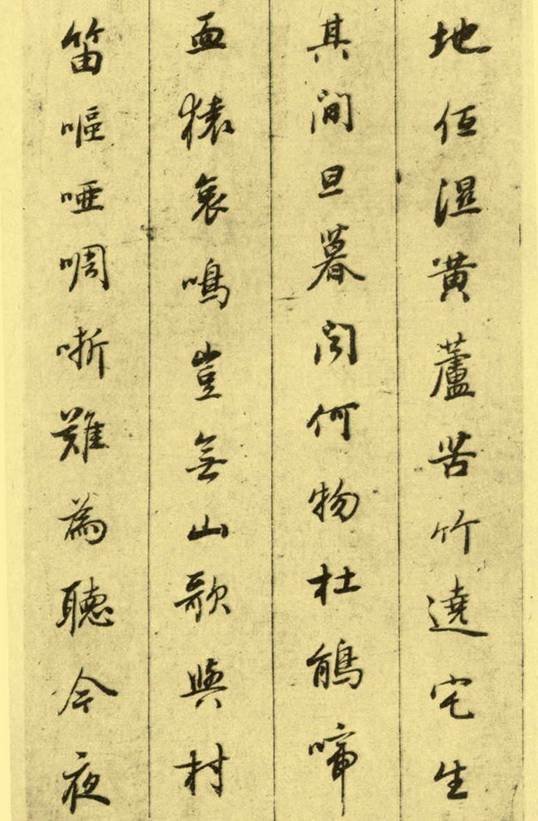 地低湿黄蘆苦竹遶宅生
其間旦暮聞何物杜鵑啼
血猿哀鳴豈無山歌與村
笛嘔啞啁哳難為聽今夜